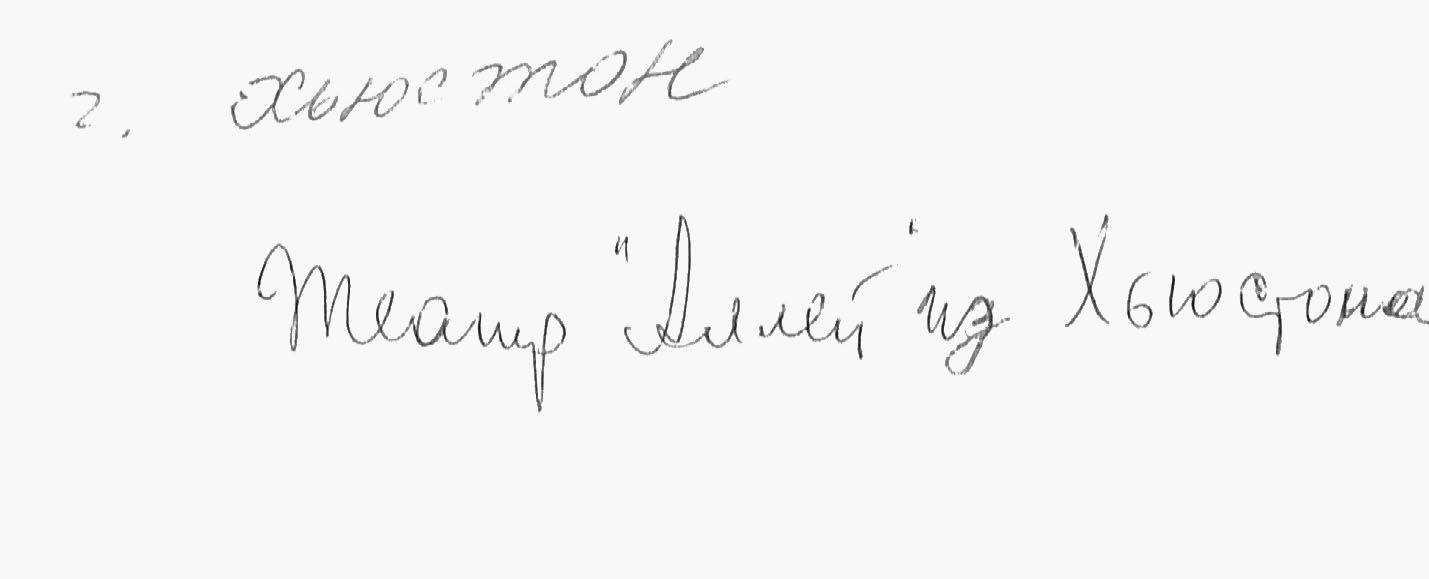 г. Хьюстон
Театр "Аллей" из Хьюстона